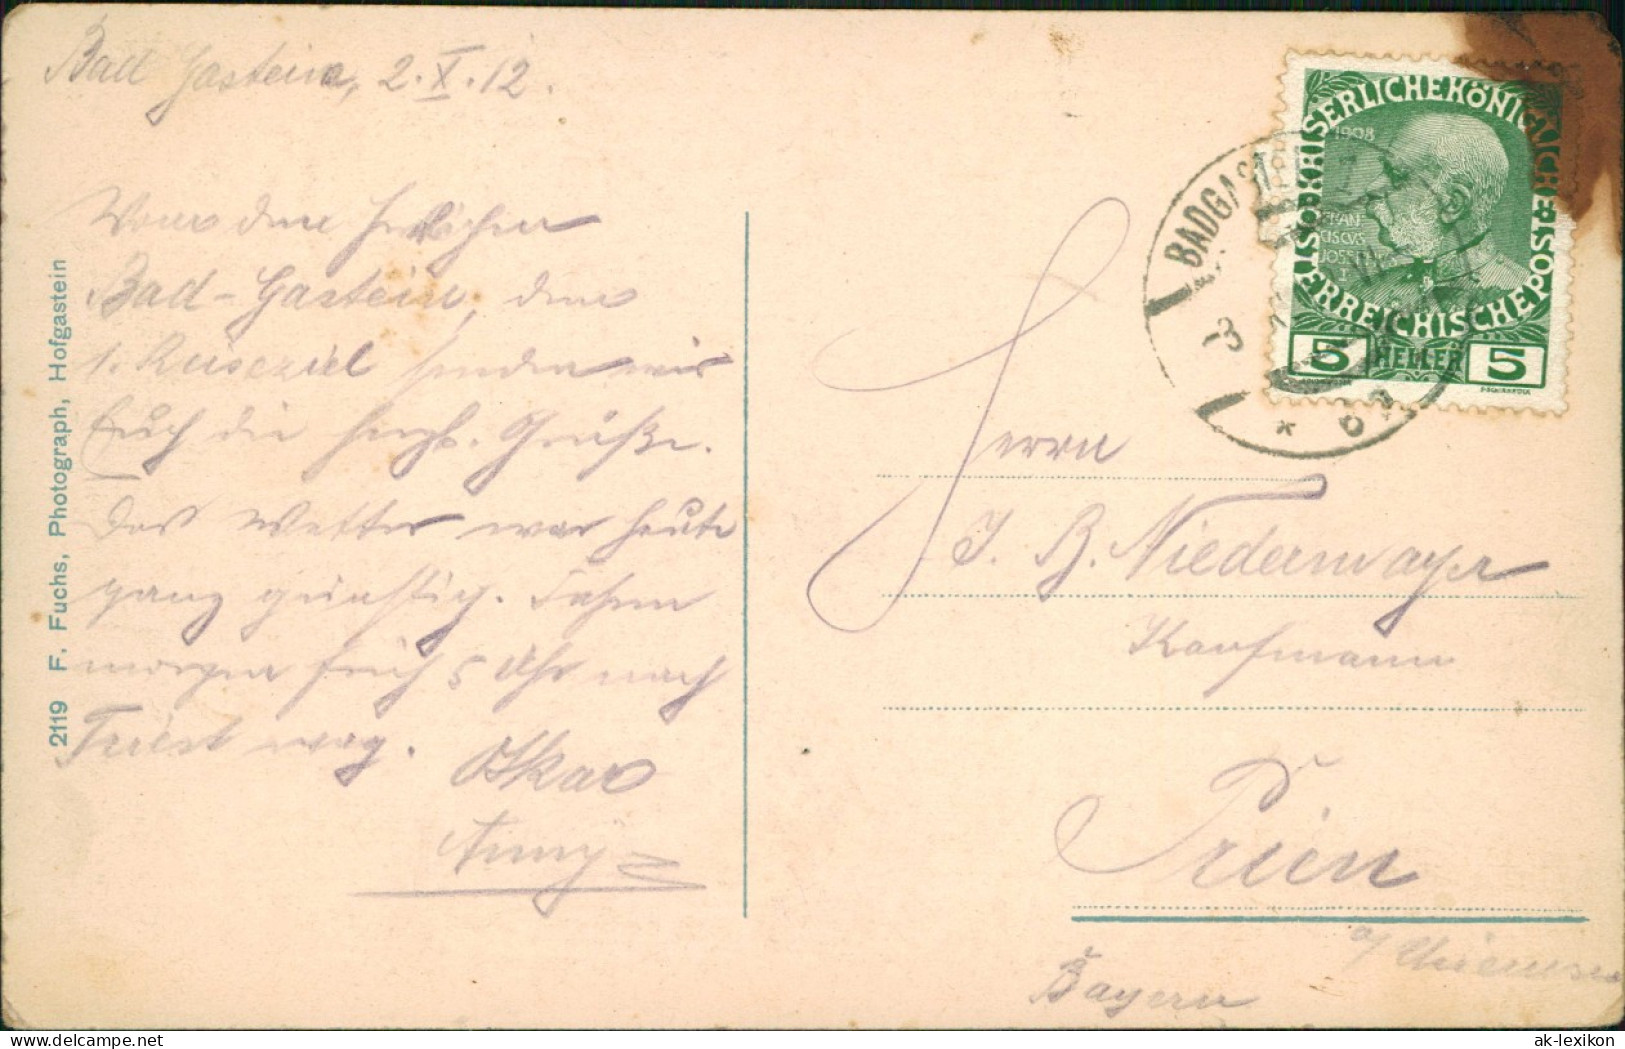 Bad Gastein, 2. X. 12.
Von dem herrlichen
Bad-Gastein, dem
1. Reiseziel senden wir
Euch die herzl. Grüße.
Das Wetter war heute
ganz günstig. Fahren
morgen früh 5 Uhr nach
Triest weg.
Oskar
Anny
2119 F. Fuchs, Photograph, Hofgastein
KAISERLICHE KÖNIGLICHE ÖSTERREICHISCHE POST
1908
FRANCISCUS JOSEPHUS I
5 HELLER 5
BADGASTEIN 1
3
* 6a
Herrn
J. B. Niedermayer
Kaufmann
Prien
a/ Chiemsee
Bayern
ak-lexikon